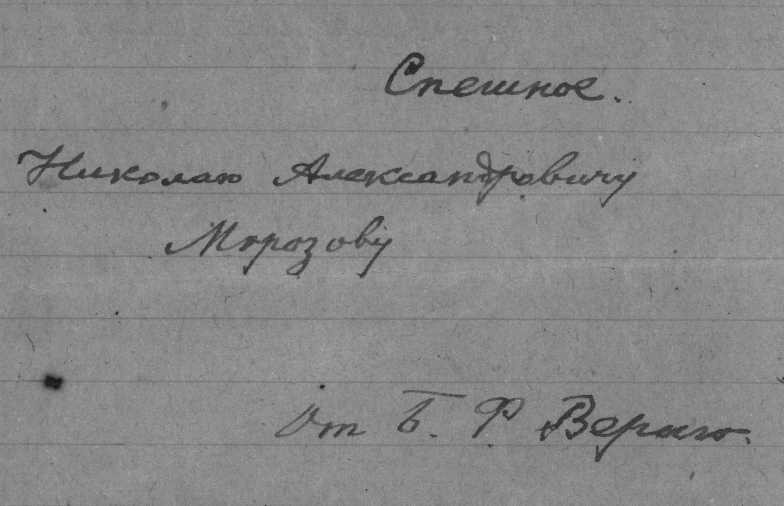 Спешное.
Николаю Александровичу
Морозову
От Б. Ф. Вериго.